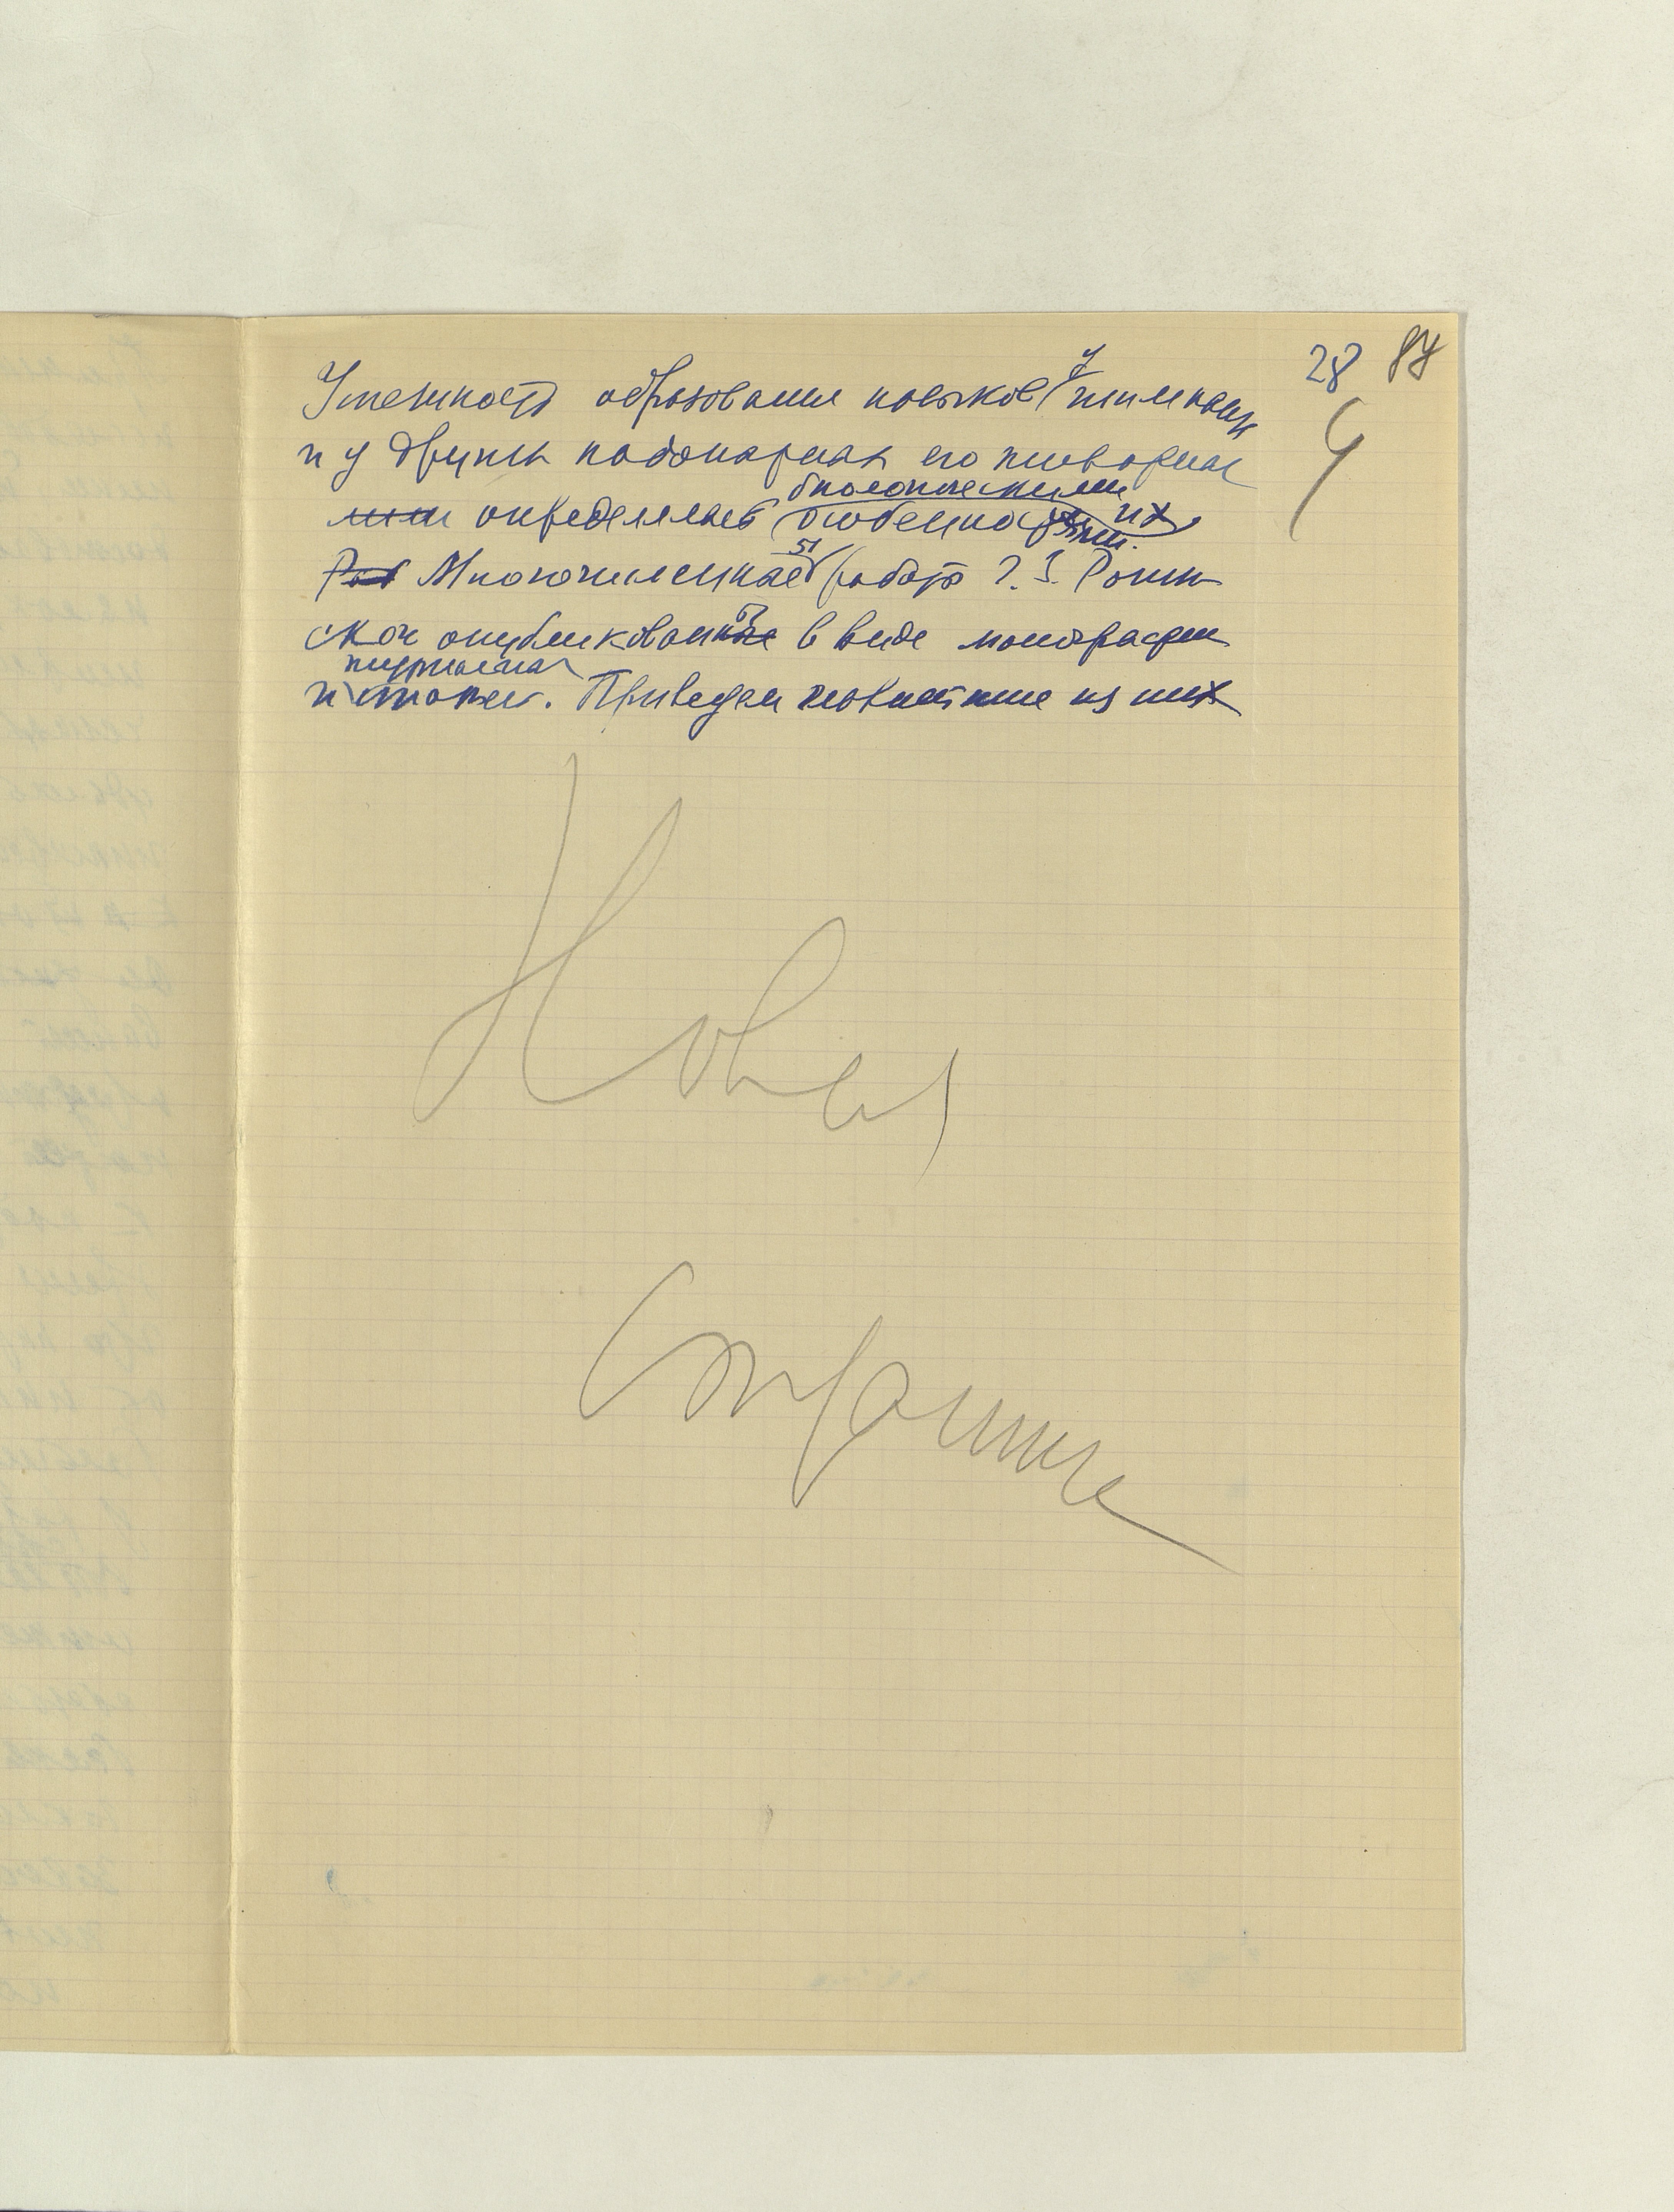 28 87
Успешность образования навыков у шимпанзе
и у других подопытных его животных
определяется биологическими особенностями их.
Многочисленные работы Г. З. Рогин
ской опубликованы в виде монографии
и журнальных статей. Приведем новейшие из них
Новая
страница